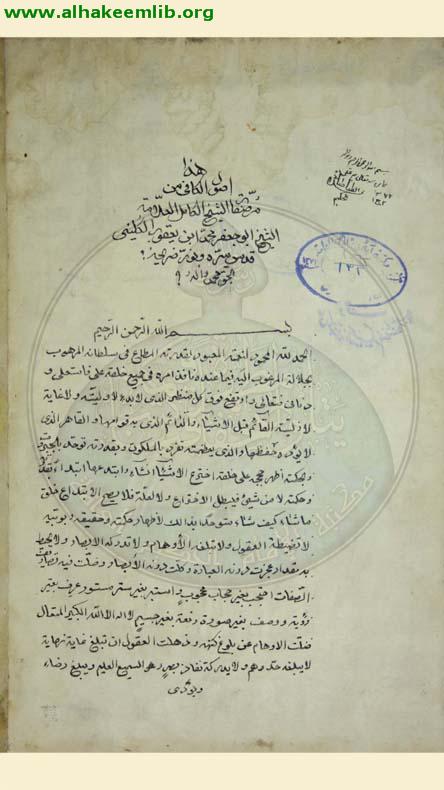 www.alhakeemlib.org
هذا
اصول الكافى من
مصنفات الشيخ الكامل العلامة
الشيخ ابو جعفر محمد ابن يعقوب الكلينى
قدس سره ونور ضريحه
بحق محمد وآله
بسم الله الرحمن الرحيم
الحمد لله المحمود لنعمته المعبود لقدرته المطاع فى سلطانه المرهوب
بجلاله المرغوب اليه فيما عنده نافذ امره فى جميع خلقه علا فاستعلى و
دنا فتعالى وارتفع فوق كل منظر الذى لا بدء لاوليته ولا غاية
لازليته القائم قبل الاشياء والدائم الذى به قوامها والقاهر الذى
لا يؤده حفظها والذى بعظمته تفرد بالملكوت وبقدرته توحد بالجبروت
وبحكمته اظهر حججه على خلقه اخترع الاشياء انشاء وابتدعها ابتداء بقدرته
وحكمته لا من شىء فيبطل الاختراع ولا لعلة فلا يصح الابتداع خلق
ما شاء كيف شاء متوحدا بذلك لاظهار حكمته وحقيقة ربوبيته
لا تضبطه العقول ولا تبلغه الأوهام ولا تدركه الابصار ولا يحيط
به مقدار عجزت دونه العبارة وكلت دونه الابصار وضلت فيه تصاريف
الصفات احتجب بغير حجاب محجوب واستتر بغير ستر مستور عرف بغير
رؤية ووصف بغير صورة ونعت بغير جسم لا اله الا الله الكبير المتعال
ضلت الاوهام عن بلوغ كنهه وذهلت العقول ان تبلغ غاية نهايته
لا يبلغه حد وهم ولا يدركه نفاذ بصر وهو السميع العليم